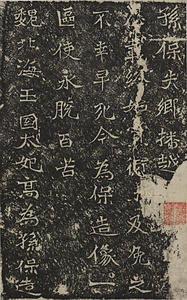 孫保失鄉播越
始及免之
不幸早死今為保造像一
區使永脫百苦
魏北海王國太妃高為孫保造